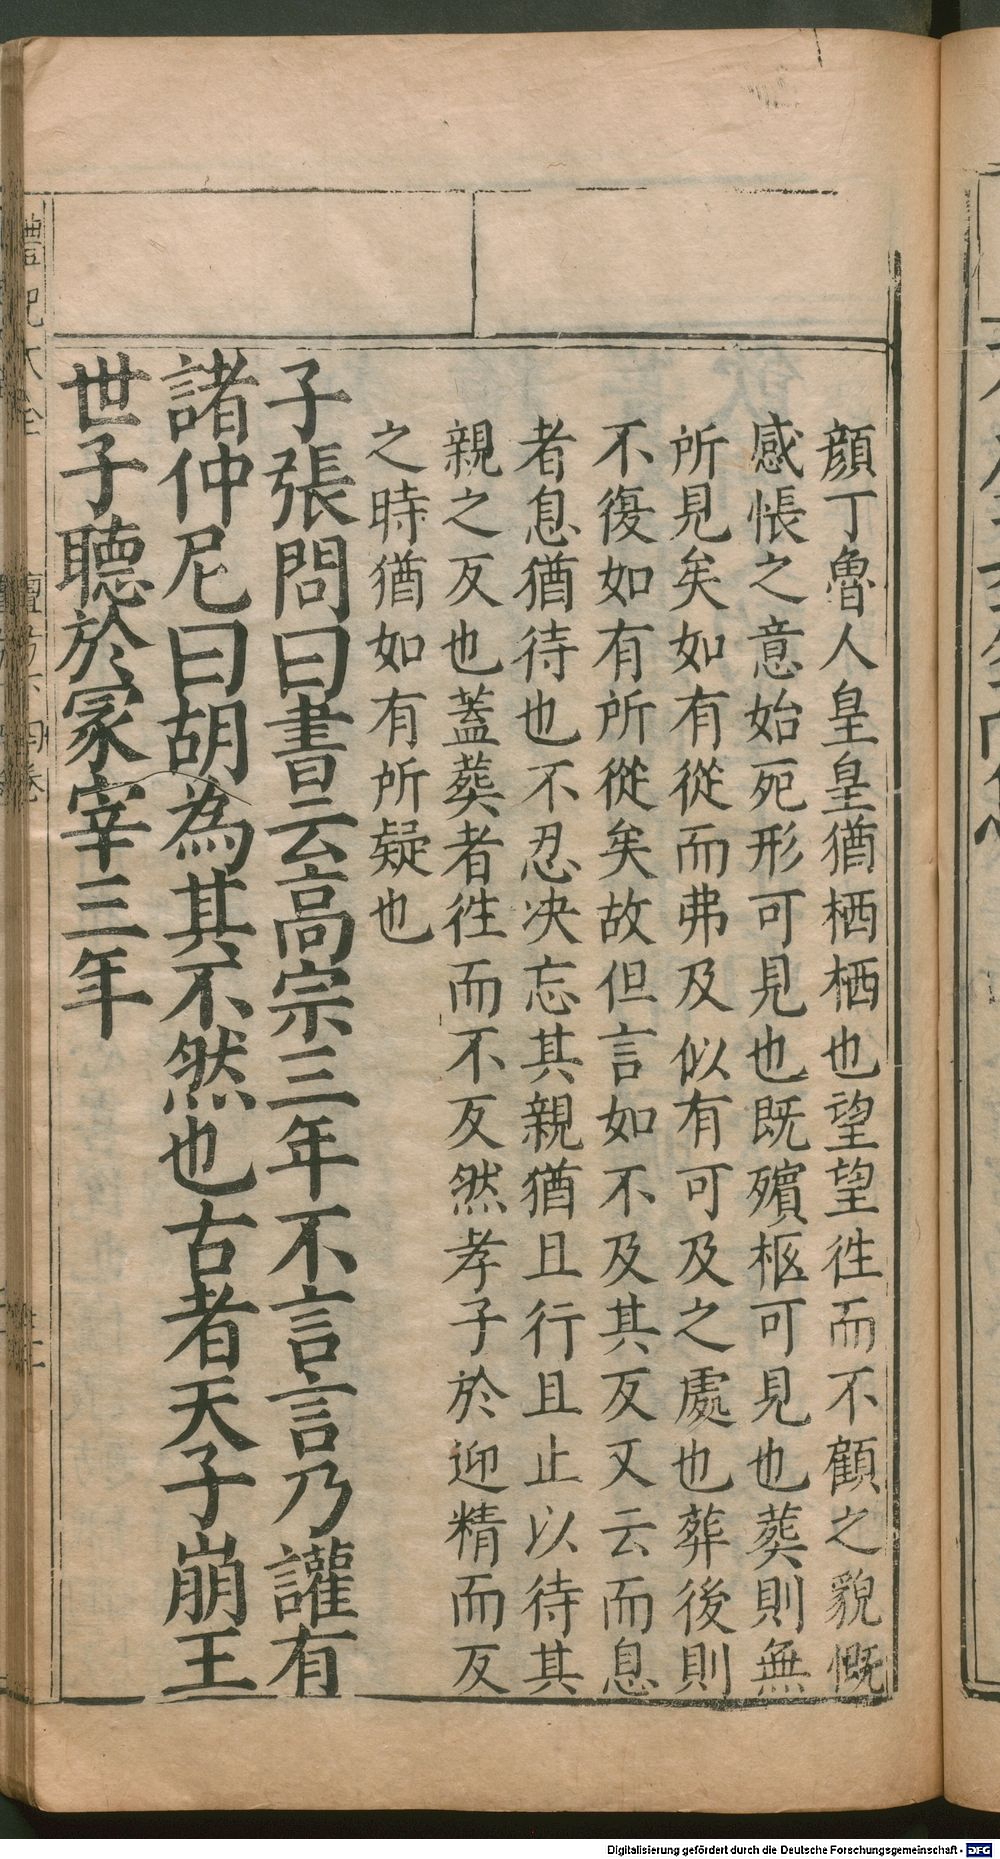 顔丁魯人皇皇猶栖栖也望望徃而不顧之貌慨
感悵之意始死形可見也既殯柩可見也葬則無
所見矣如有從而弗及似有可及之處也葬後則
不復如有所從矣故但言如不及其反又云而息
者息猶待也不忍决忘其親猶且行且止以待其
親之反也蓋葬者徃而不反然孝子於迎精而反
之時猶如有所疑也
子張問曰書云高宗三年不言言乃讙有
諸仲尼曰胡為其不然也古者天子崩王
世子聽於冢宰三年
禮記大全 檀弓下四卷
Digitalisierung gefördert durch die Deutsche Forschungsgemeinschaft - DFG